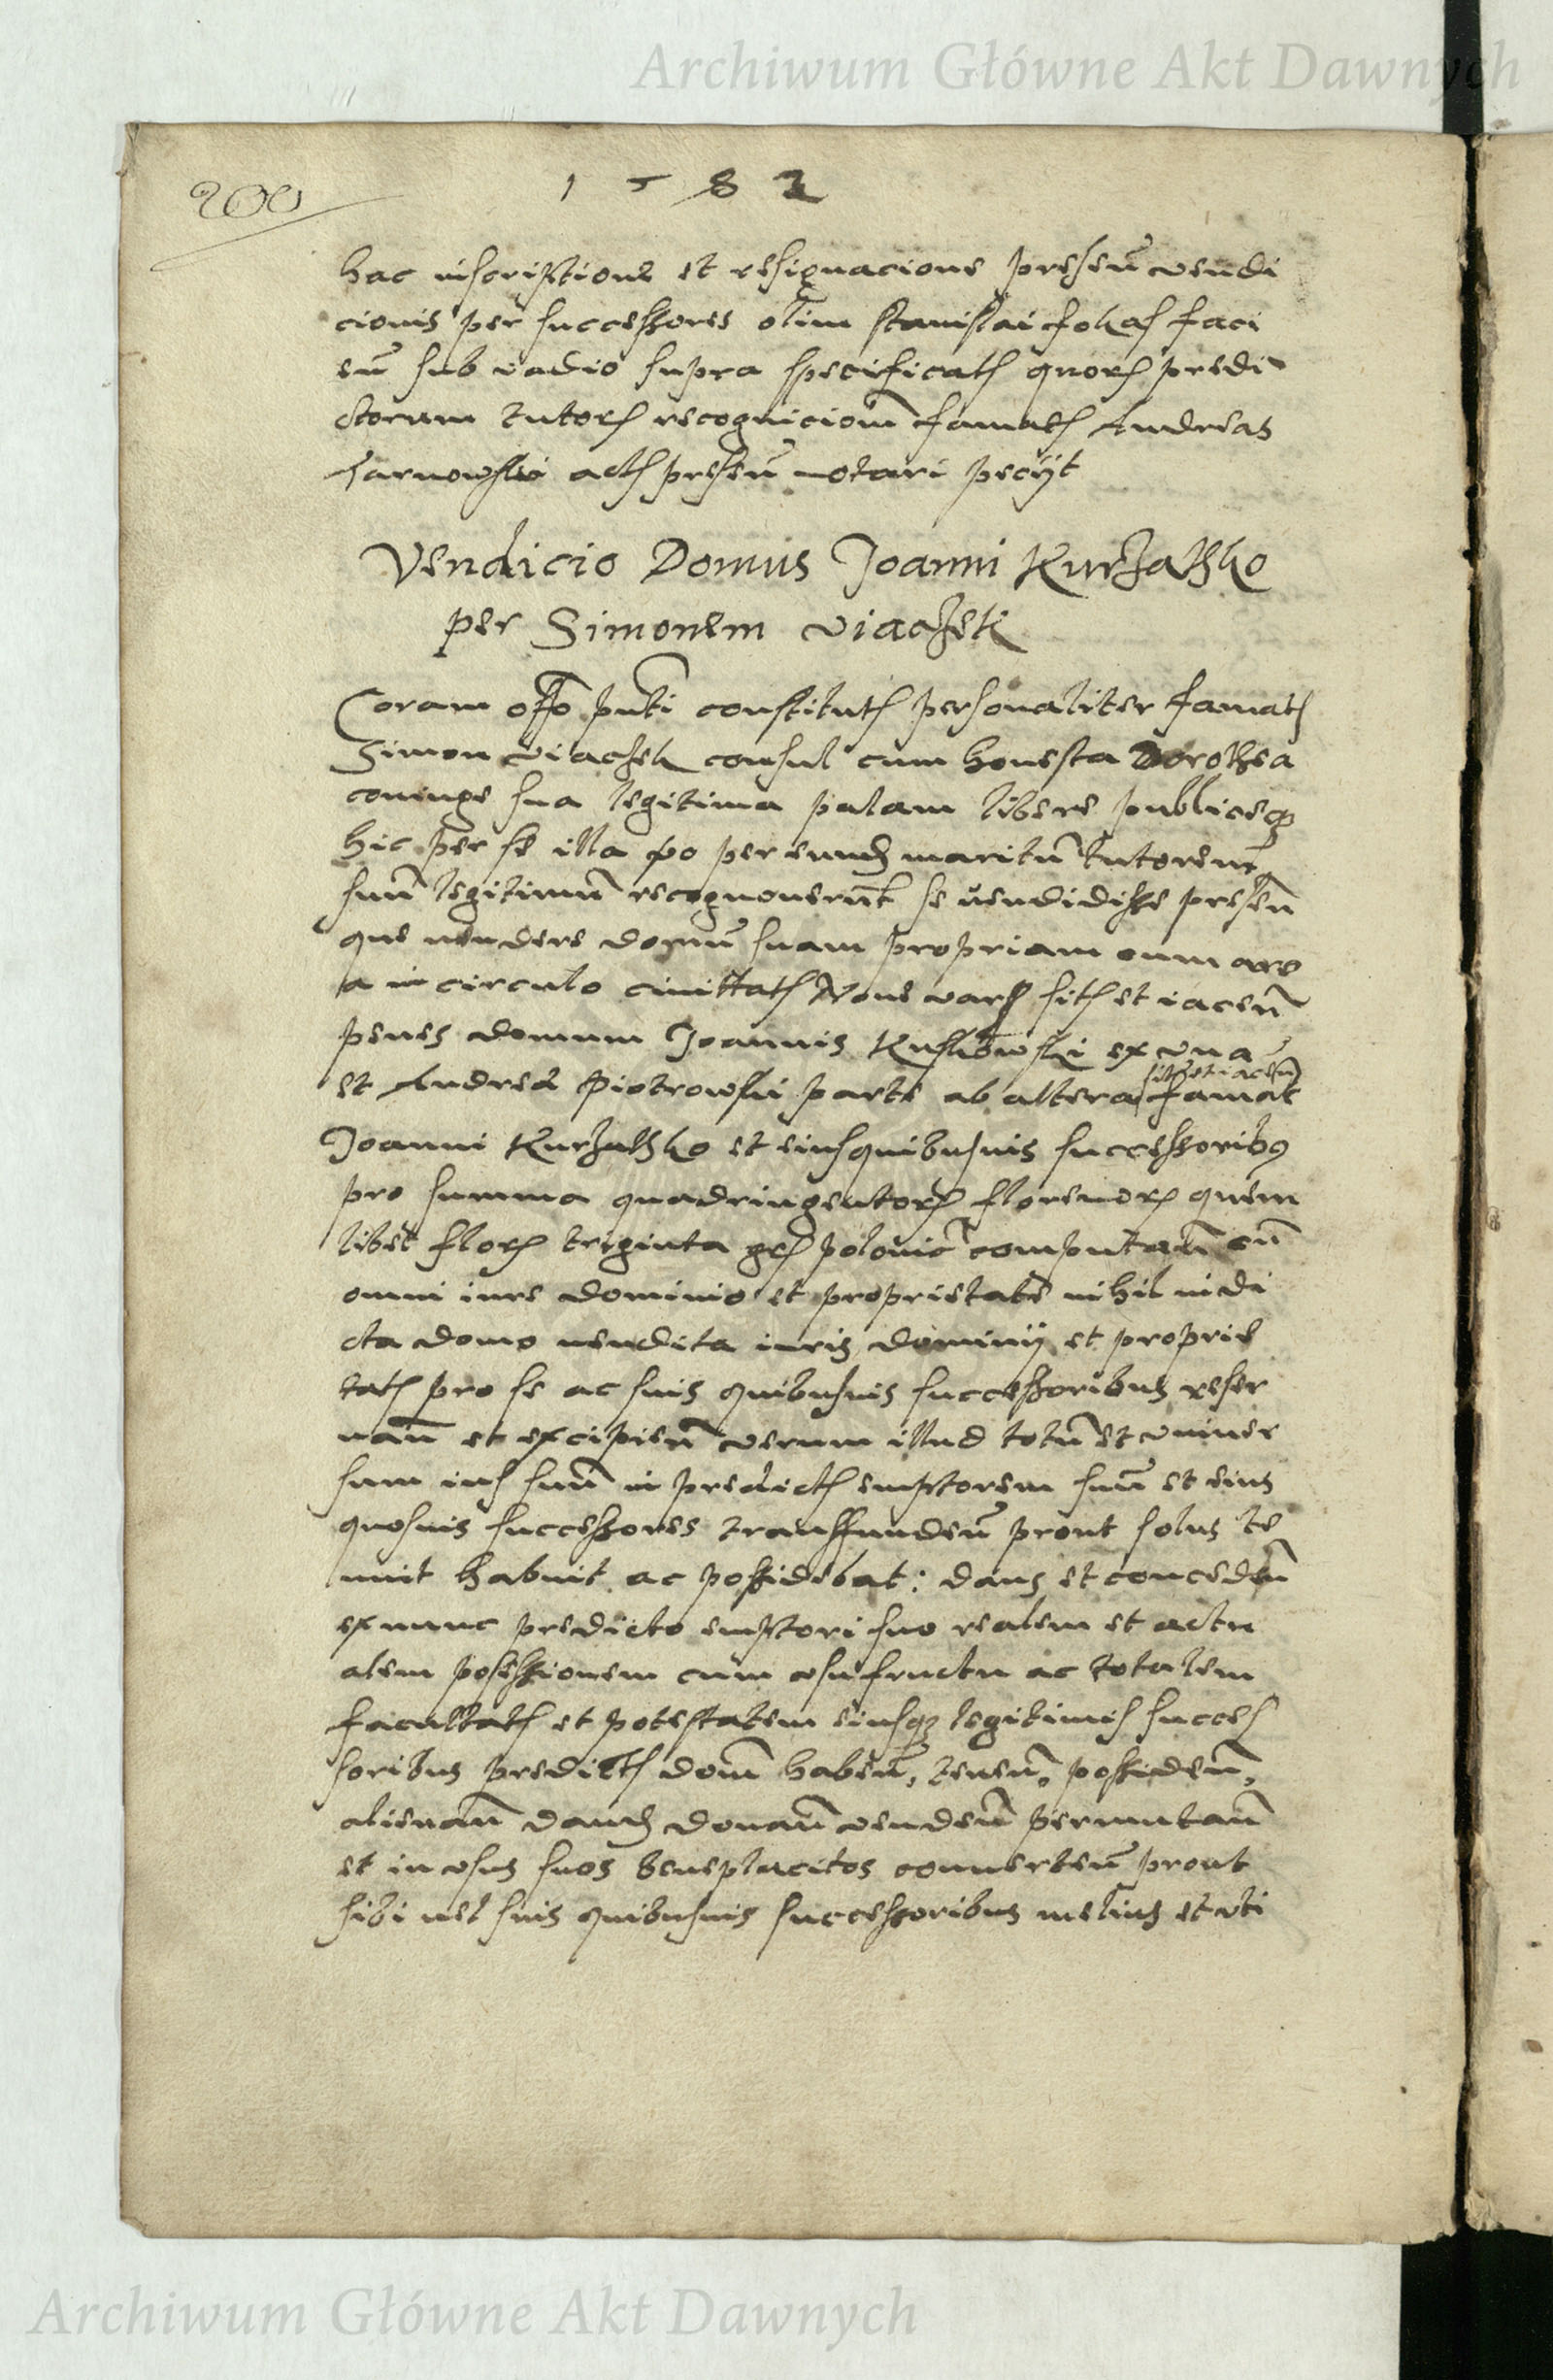 Archiwum Główne Akt Dawnych
200
1582
hac inscriptione et resignacione presen vendi
cionis per successores olim Stanislai folas faci
en sub vadio supra specificat quor predi
ctorum tutor recognicionem famat Andreas
Tarnowski act presen notari peciit
Vendicio Domus Joanni Kurzathko
per Simonem Viaczek
Coram offo pnti constitut personaliter famat
Simon Viaczek consul cum honesta Dorothea
coniuge sua legitima palam libere publiceq
hic per se illa vo per eund maritu tutorem
suu legitimu recognouerut se uendidisse presen
que uendere domu suam propriam cum are
a in circulo ciuittat Noue Vars sit et iacen
penes domum Joannis Kuskowski ex vna
sit et iacen
et Andrea Piotrowski parte ab altera famat
Joanni Kurzathko et eius quibusuis successorib9
pro summa quadringentor florenor quem
libet flor triginta gr polonic computan cu
omni iure dominio et proprietate nihil in di
cta domo uendita iuris dominij et proprie
tat pro se ac suis quibusuis successoribus reser
uan et excipien verum illud totu et vniuer
sum ius suu in predict emptorem suu et eius
quosuis successores transfunden prout solus te
nuit habuit ac possidebat: dans et conceden
ex nunc predicto emptori suo realem et actu
alem posessionem cum vsufructu ac totalem
facultat et potestatem eiusq legitimis succes
soribus predict dom haben, tenen, possiden,
alienan dand donan venden permutan
et in vsus suos beneplacitos conuerten prout
sibi uel suis quibusuis successoribus melius et vti
Archiwum Główne Akt Dawnych